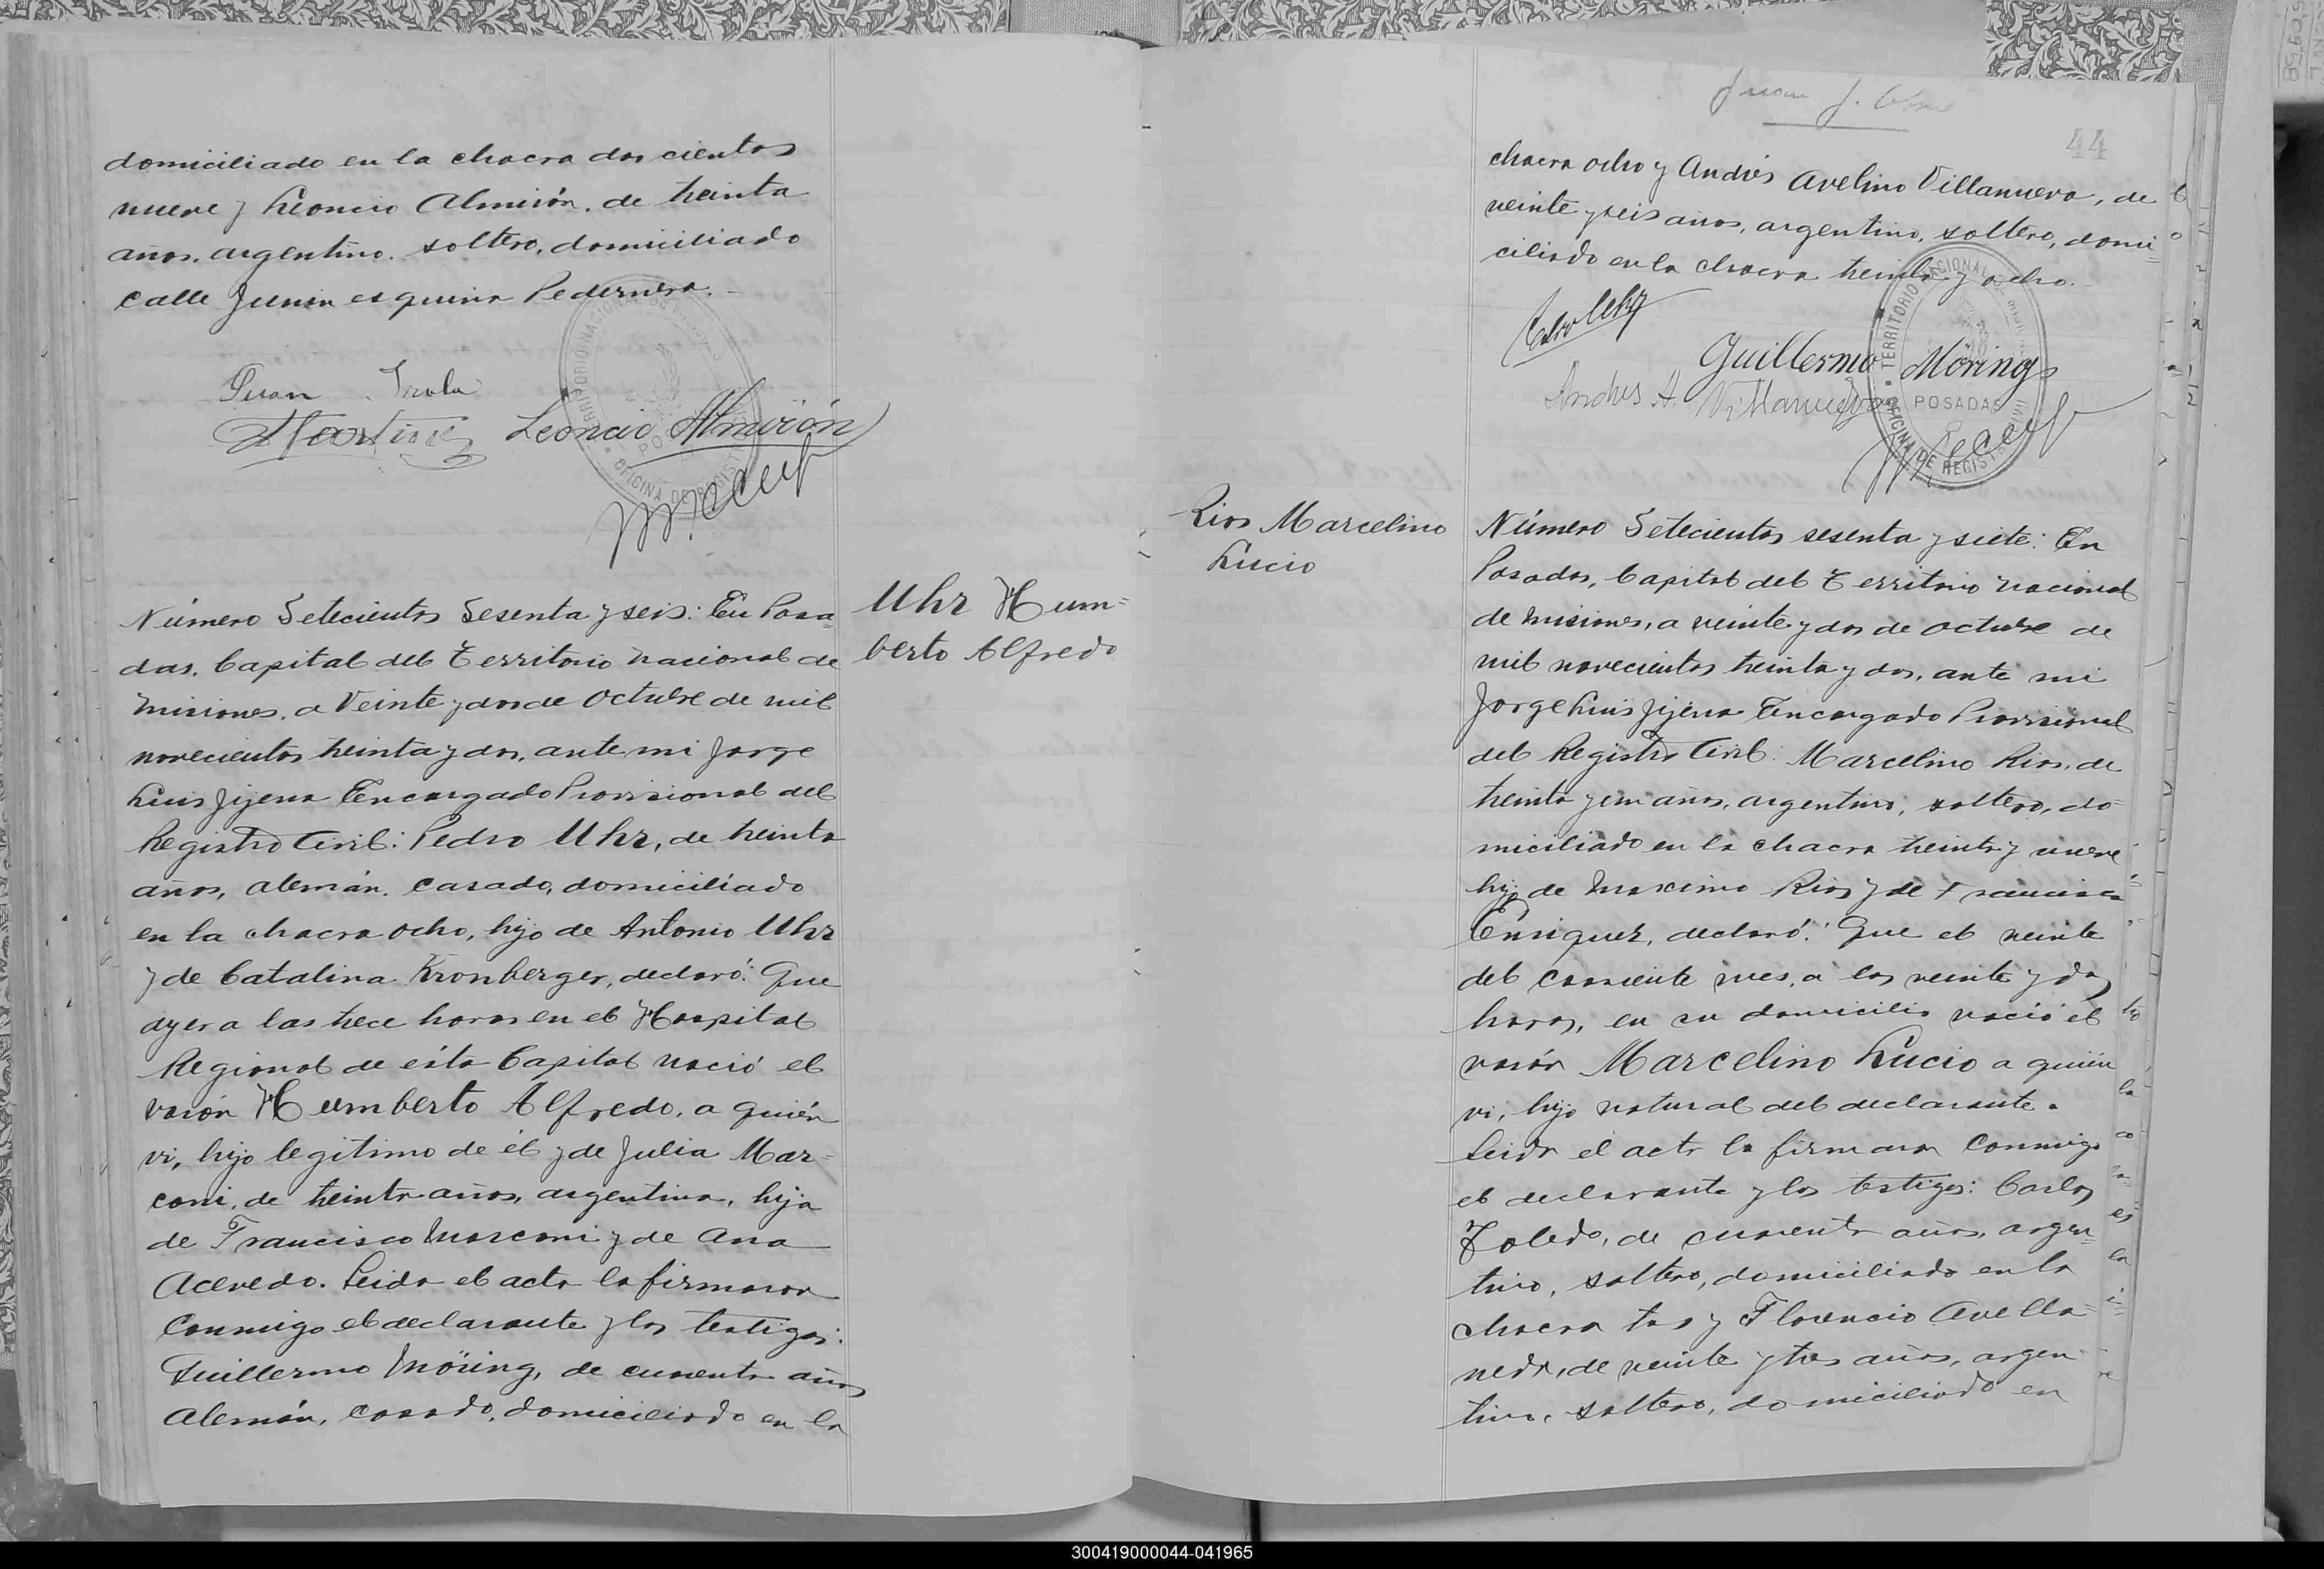 domiciliado en la chacra dos cientos
nueve y Leoncio Almirón, de treinta
años, argentino, soltero, domiciliado
calle Junin esquina Pedernera.
Juan Irala
Martinez Leoncio Almirón
OFICINA DE REGISTRO
Número Setecientos Sesenta y seis: En Posa=
das, Capital del Territorio Nacional de
Misiones, a Veinte y dos de Octubre de mil
novecientos treinta y dos, ante mi Jorge
Luis Jijena Encargado Provisional del
Registro Civil: Pedro Uhr, de treinta
años, alemán, casado, domiciliado
en la chacra ocho, hijo de Antonio Uhr
y de Catalina Kronberger, declaró: Que
ayer a las trece horas en el Hospital
Regional de ésta Capital nació el
varón Humberto Alfredo, a quién
vi, hijo legítimo de él y de Julia Mar=
coni, de treinta años, argentina, hija
de Francisco Marconi y de Ana
Acevedo. Leida el acta la firmaron
Conmigo el declarante y los testigos:
Guillermo Möring, de cuarenta años
Alemán, casado, domiciliado en la
Uhr Hum=
berto Alfredo
Juan J.
44
chacra ocho y Andrés Avelino Villanueva, de
veinte y seis años, argentino, soltero, domi=
ciliado en la chacra treinta y ocho.
Uhr
Guillermo Möring
Andres A. Villanueva
TERRITORIO NACIONAL DE MISIONES
POSADAS
OFICINA DE REGISTRO CIVIL
Rios Marcelino
Lucio
Número Setecientos sesenta y siete: En
Posadas, Capital del Territorio Nacional
de Misiones, a veinte y dos de octubre de
mil novecientos treinta y dos, ante mi
Jorge Luis Jijena Encargado Provisional
del Registro Civil: Marcelino Rios, de
treinta y un años, argentino, soltero, do=
miciliado en la chacra treinta y nueve
hijo de Maximo Rios y de Francisca
Enriquez, declaró: Que el veinte
del corriente mes, a las veinte y dos
horas, en su domicilio nació el
varón Marcelino Lucio a quién
vi, hijo natural del declarante.
Leida el acta la firmaron Conmigo
el declarante y los testigos: Carlos
Toledo, de cuarenta años, argen=
tino, soltero, domiciliado en la
chacra tres y Florencio Avella=
neda, de veinte y tres años, argen=
tino, soltero, domiciliado en
300419000044-041965